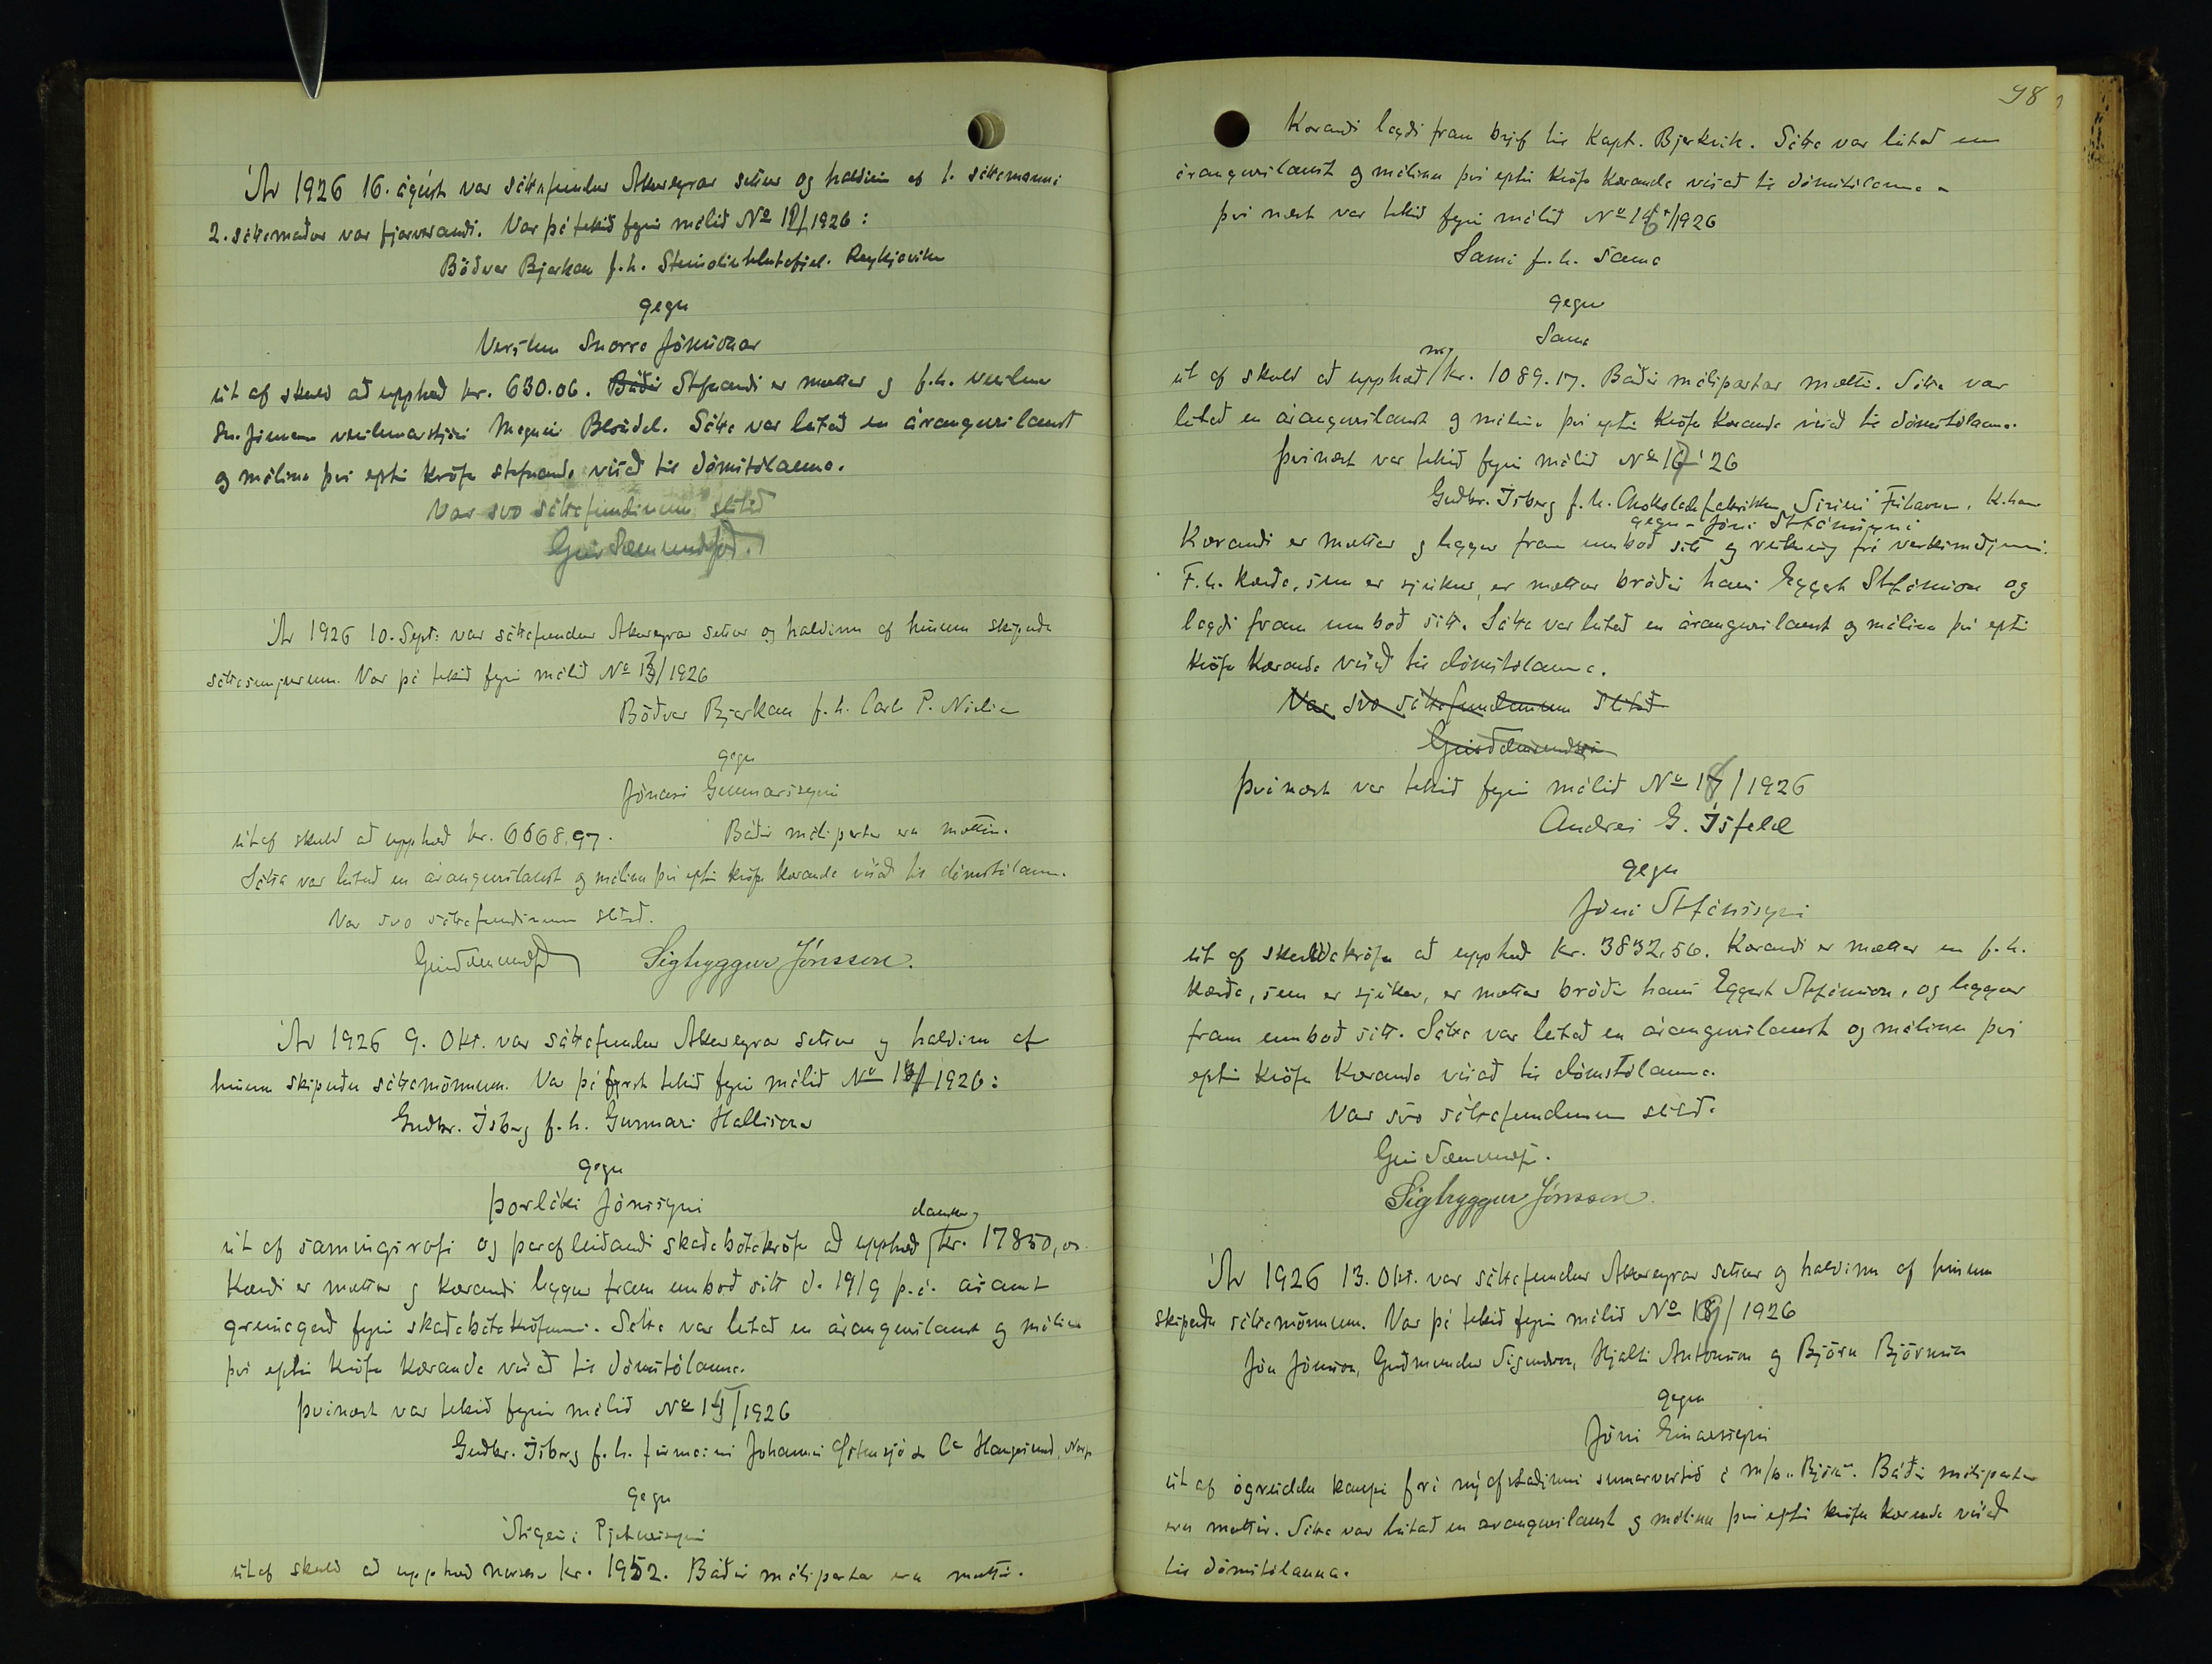 Ár 1926 16. ágúst var sáttafundur Akureyrar settur og haldinn af 1. sáttamanni
2. sáttamaður var fjarverandi. Var þá tekið fyrir málið No 12/1926:
Böðvar Bjarkan f.h. hlutafjel. Reykjavíkur
gegn
Verslun Snorra Jónssonar
út af skuld að upphæð kr. 630.06. Báðir Stefnandi er mættur og f.h. verslunar
Sn. Jónssonar verslunarstjóri Magnús Blöndal. Sátta var leitað en árangurslaust
og málinu því eptir kröfu stefnanda vísað til dómstólanna.
Var svo sáttafundinum slitið
Geir Sæmundsson
Ár 1926 10. Sept. var sáttafundur Akureyrar settur og haldinn af hinum skipuðu
sáttasemjurum. Var þá tekið fyrir málið No 13/1926
Böðvar Bjarkan f.h. Carl P. Nielsen
gegn
Jónasi Gunnarssyni
út af skuld að upphæð kr. 6668,97. Báðir málspartar eru mættir.
Sátta var leitað en árangurslaust og málinu því eptir kröfu kæranda vísað til dómstólanna.
Var svo sáttafundinum slitið.
Geir Sæmundsson Sigtryggur Jónsson.
Ár 1926 9. Okt. var sáttafundur Akureyrar settur og haldinn af
hinum skipuðu sáttamönnum. Var þá fyrst tekið fyrir málið No 14/1926:
Guðbr. Ísberg f.h. Gunnars Hallssonar
gegn
Þorláki Jónssyni
út af samningsrofi og þaraf leiðandi skaðabótakröfu að upphæð danskar kr. 17850,00
Kærði er mættur og kærandi leggur fram umboð sitt d. 19/9 þ.á. ásamt
greinagerð fyrir skaðabótakröfunni. Sátta var leitað en árangurslaust og málinu
því eptir kröfu kæranda vísað til dómstólanna.
Þvínæst var tekið fyrir málið No 15/1926
Guðbr. Ísberg f.h. firmains Johannes Östensjö & Co Haugesund, Norge
gegn
Ásgeiri Pjeturssyni
út af skuld að upphæð norskar kr. 1952. Báðir málspartar eru mættir.
98
Kærandi lagði fram brjef til Kapt. Bjerkvik. Sátta var leitað en
árangurslaust og málinu því eptir kröfu kæranda vísað til dómstólanna.
Því næst var tekið fyrir málið No 16/1926
Sami f.h. sama
gegn
Sama
út af skuld að upphæð nor. kr. 1089.17. Báðir málspartar mættir. Sátta var
leitað en árangurslaust og málinu því eptir kröfu kæranda vísað til dómstólanna.
Þvínæst var tekið fyrir málið No 17 '26
Guðbr. Ísberg f.h. Chokoladefabrikken Sirius Frihavnen, K.havn
gegn Jóni Stefánssyni
Kærandi er mættur og leggur fram umboð sitt og reikning frá verksmiðjunni.
F.h. kærða, sem er sjúkur, er mættur bróðir hans Eggert Stefánsson og
lagði fram umboð sitt. Sátta var leitað en árangurslaust og málinu því eptir
kröfu kæranda vísað til dómstólanna.
Var svo sáttafundinum slitið
Geir Sæmundsson
Þvínæst var tekið fyrir málið No 18/1926
Andrés G. Ísfeld
gegn
Jóni Stefánssyni
út af skuldakröfu að upphæð kr. 3832.56. Kærandi er mættur en f.h.
kærða, sem er sjúkur, er mættur bróðir hans Eggert Stefánsson, og leggur
fram umboð sitt. Sátta var leitað en árangurslaust og málinu því
eptir kröfu kæranda vísað til dómstólanna.
Var svo sáttafundinum slitið.
Geir Sæmundss.
Sigtryggur Jónsson.
Ár 1926 13. Okt. var sáttafundur Akureyrar settur og haldinn af hinum
skipuðu sáttamönnum. Var þá tekið fyrir málið No 19/1926
Jón Jónsson, Guðmundur Sigurðsson, Hjalti Antonsson og Björn Björnsson
gegn
Jóni Einarssyni
út af ógreiddu kaupi frá nýafstaðinni sumarvertíð á m/b „Björn“. Báðir málspartar
eru mættir. Sátta var leitað en árangurslaust og málinu því eptir kröfu kæranda vísað
til dómstólanna.